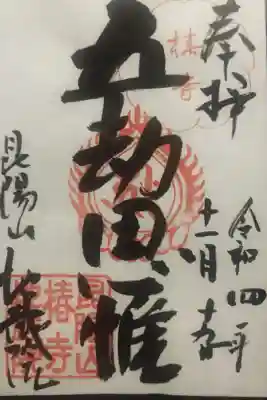 奉拝
令和四年
十一月
椿寺
五劫思惟
昆陽山 地蔵院
昆陽山
椿寺